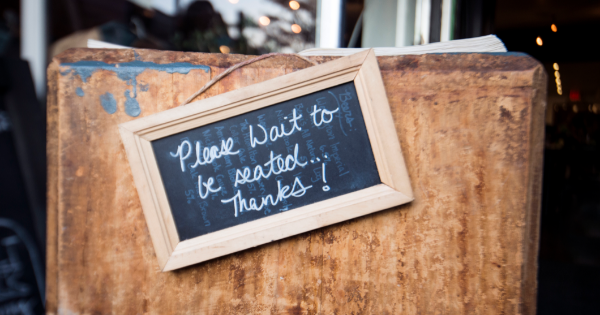 Please Wait to
be seated...
Thanks!